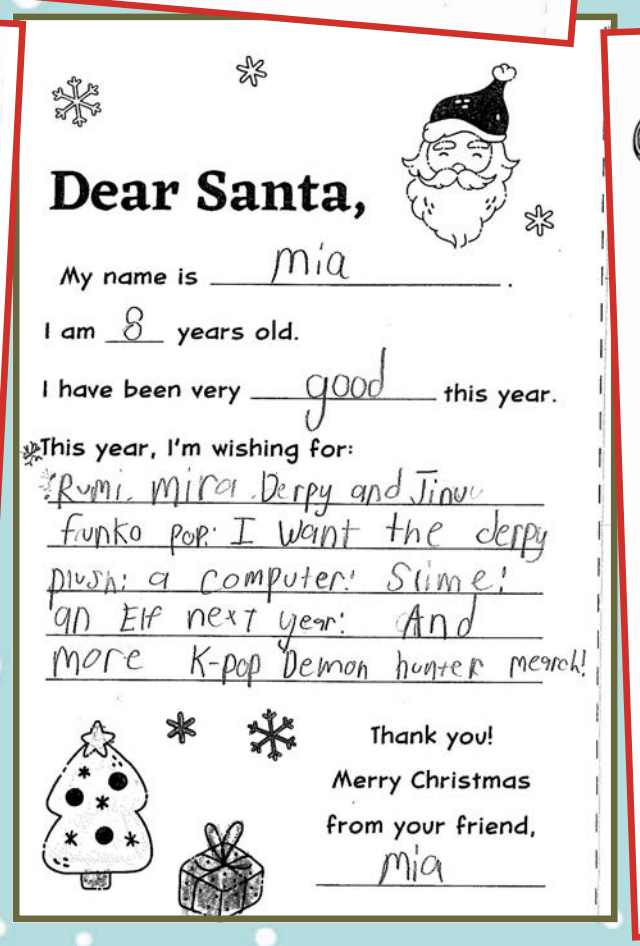 Dear Santa,
My name is mia.
I am 8 years old.
I have been very good this year.
This year, I'm wishing for:
Rumi. mira. Derpy and Jinu
funko pop. I want the derpy
plush! a computer! Slime!
an Elf next year! And
more K-pop Demon hunter mearch!
Thank you!
Merry Christmas
from your friend,
mia